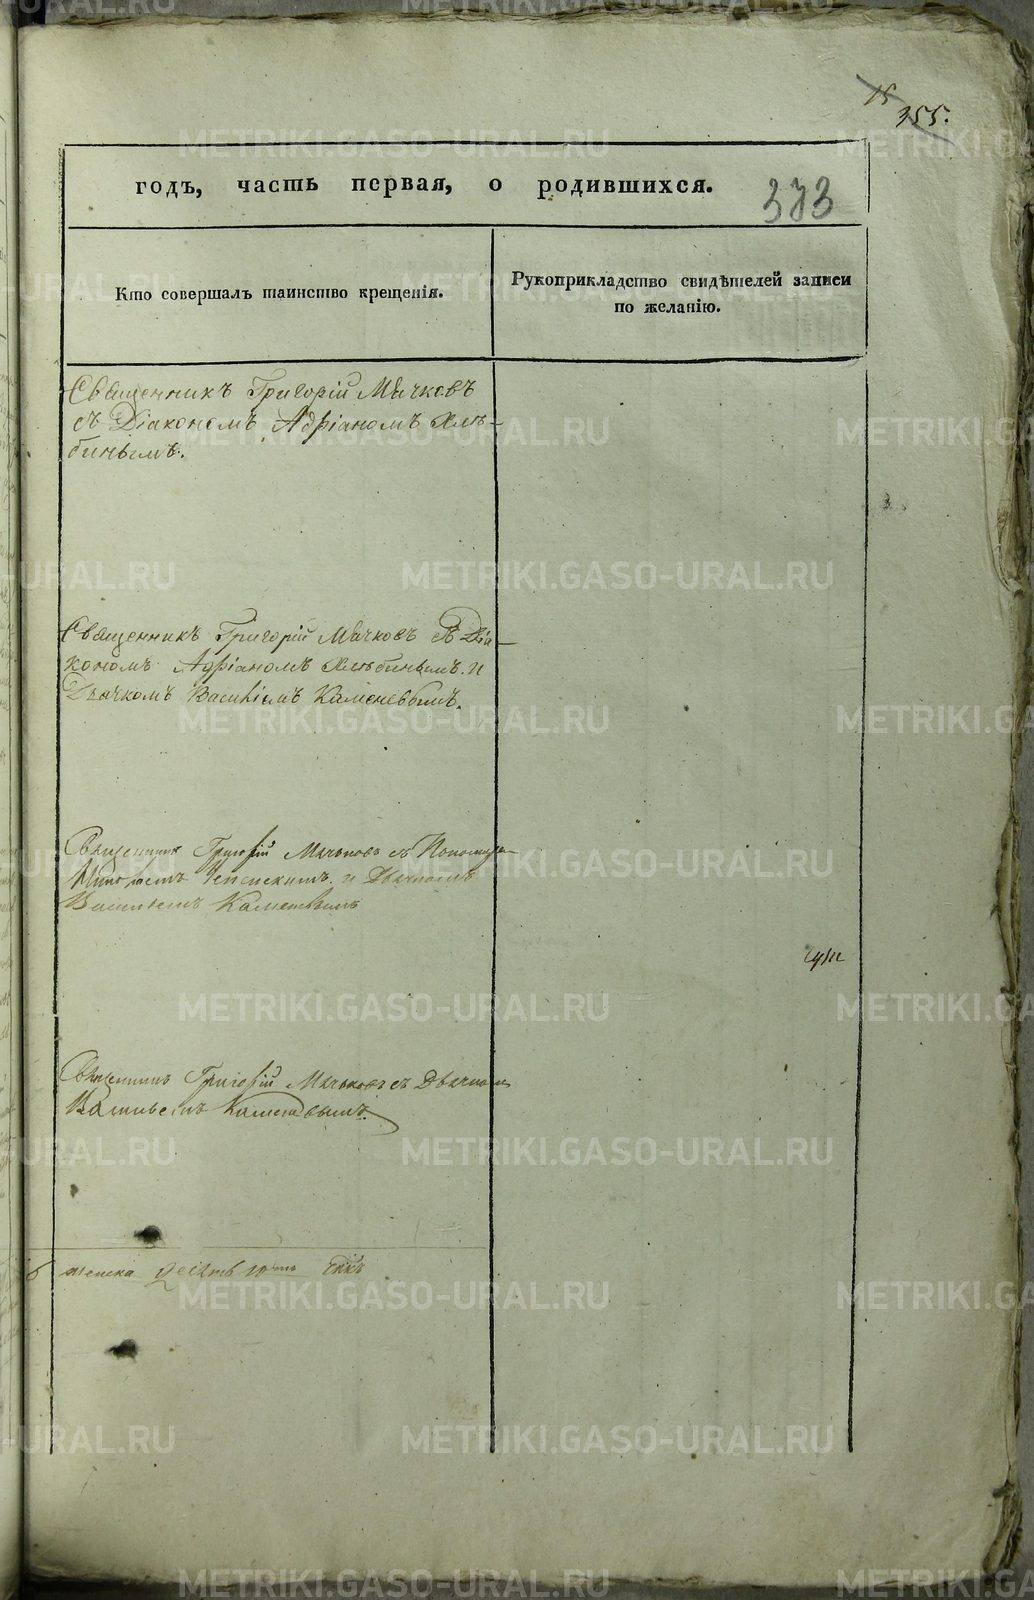 15
355.
годъ, часть первая, о родившихся.
373
Кто совершалъ таинство крещенія.
Рукоприкладство свидѣтелей записи
по желанію.
Священникъ Григорій Мячковъ
съ Діакономъ Адріаномъ Хлѣ-
бинымъ.
Священникъ Григорій Мячковъ съ Діа-
кономъ Адріаномъ Хлѣбинымъ и
Дьячкомъ Василіемъ Каменевымъ.
Священникъ Григорій Мячковъ съ Пономаре
и Дьячкомъ
Василіемъ Каменевымъ
Священникъ Григорій Мячковъ съ Дьячком
Василіемъ Каменевымъ.
женска десять 10ть
METRIKI.GASO-URAL.RU